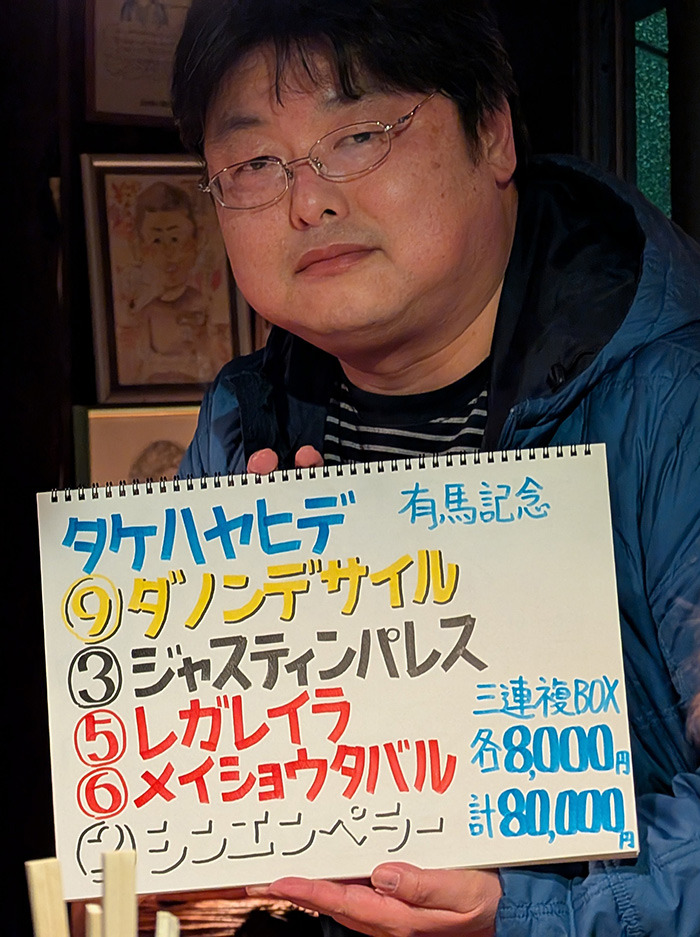 タケハヤヒデ
有馬記念
⑨ダノンデサイル
③ジャスティンパレス
⑤レガレイラ
⑥メイショウタバル
②シンエンペラー
三連複BOX
各8,000円
計80,000円